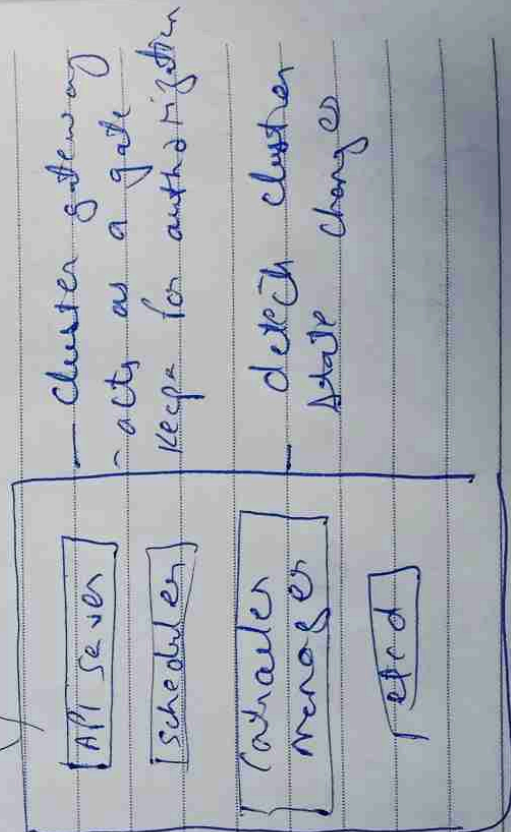 API Sever
Scheduler
Controller
manager
etcd
— Cluster gateway
- acts as a gate
keepr for authorization
— detech cluster
state changes